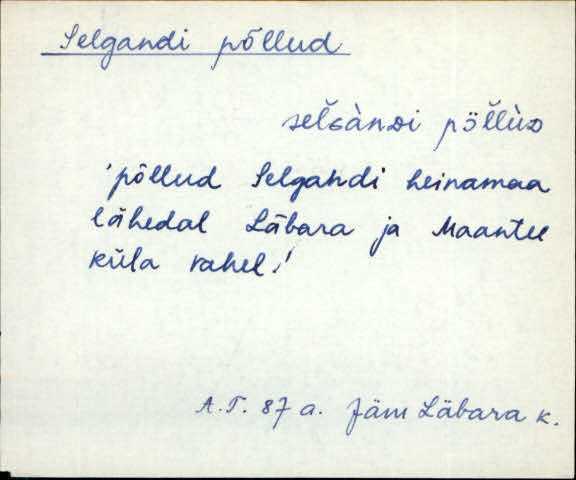 Selgandi põllud
selɢàndi pö̆l̆lùᴅ
'põllud Selgandi heinamaa
lähedal Läbara ja Maantee
küla vahel.'
A.T. 87 a. Jäm Läbara k.